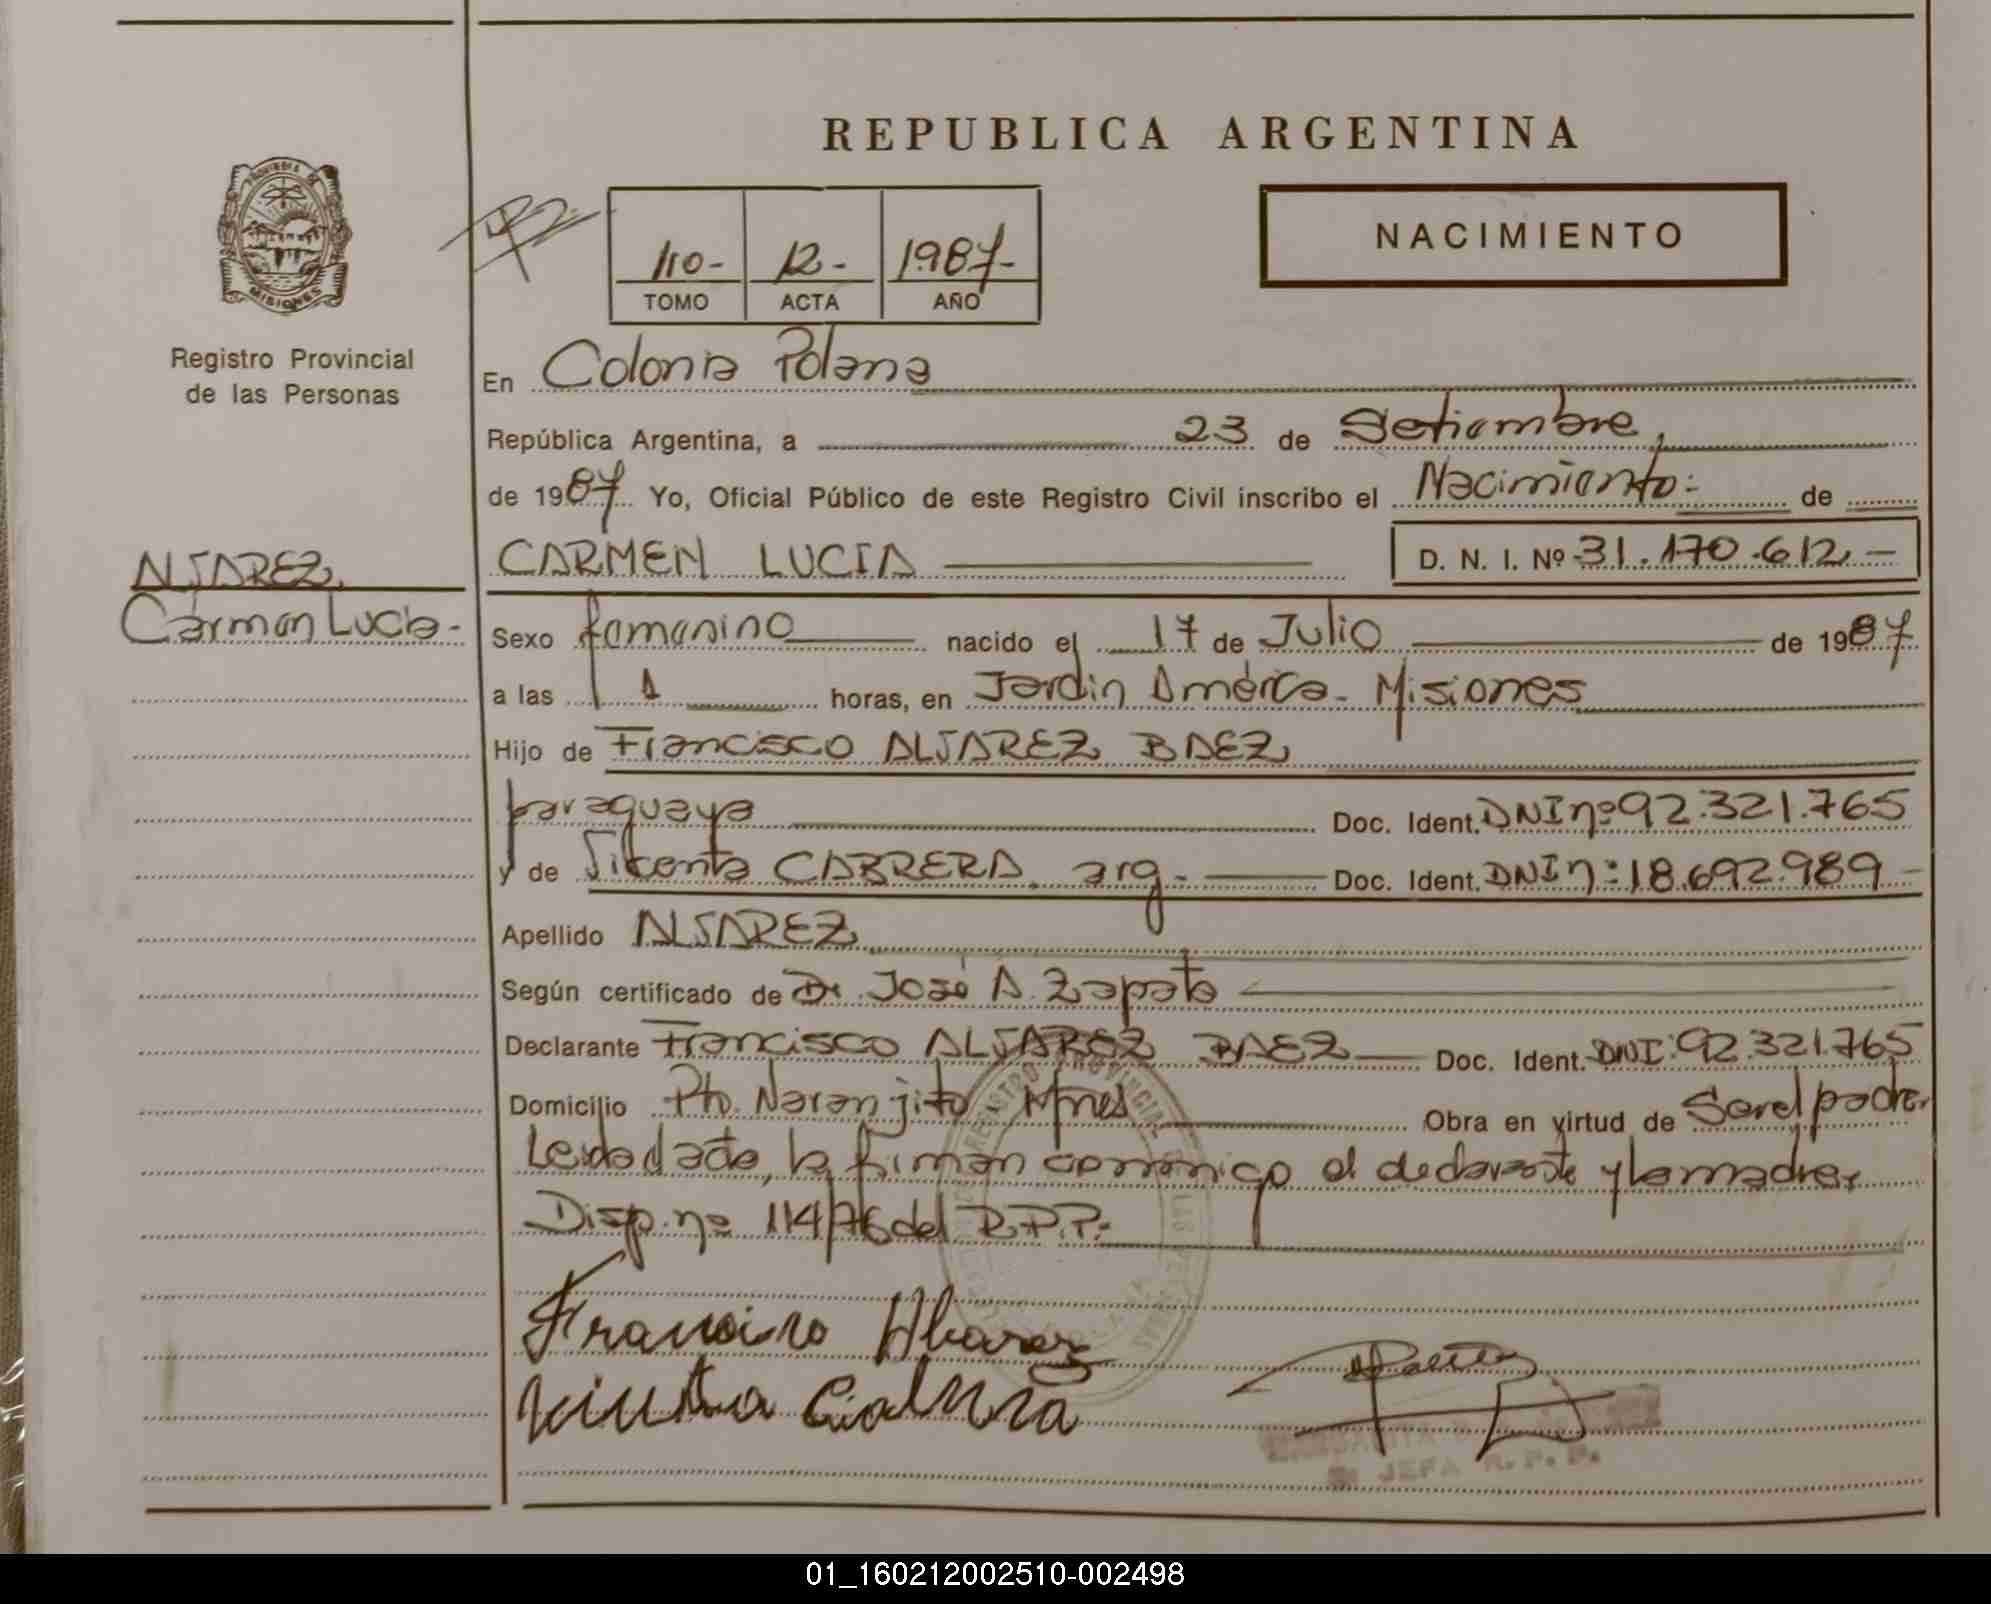 REPUBLICA ARGENTINA
NACIMIENTO
110- 12- 1987-
TOMO ACTA AÑO
PROVINCIA DE
MISIONES
Registro Provincial
de las Personas
En Colonia Polana
República Argentina, a 23 de Setiembre,
de 1987 Yo, Oficial Público de este Registro Civil inscribo el Nacimiento: de
ALVAREZ
Carmen Lucia-
CARMEN LUCIA D. N. I. Nº 31.170.612.-
Sexo femenino nacido el 17 de Julio de 1987
a las 1 horas, en Jardin América- Misiones
Hijo de Francisco ALVAREZ BAEZ
paraguaya Doc. Ident. DNI nº 92.321.765
y de Vicenta CABRERA arg.- Doc. Ident. DNI n: 18.692.989-
Apellido ALVAREZ
Según certificado de Dr. José A. Zapata
Declarante Francisco ALVAREZ BAEZ Doc. Ident. DNI: 92.321.765
Domicilio Pto. Naranjito Mnes Obra en virtud de Ser el padre.
Leida el acta, la firman conmigo el declarante y la madre.
Disp. nº 114/76 del R.P.P.-
REGISTRO PROVINCIAL DE LAS PERSONAS
Francisco Alvarez
Vicenta Cabrera
JEFA R. P. P.
01_160212002510-002498